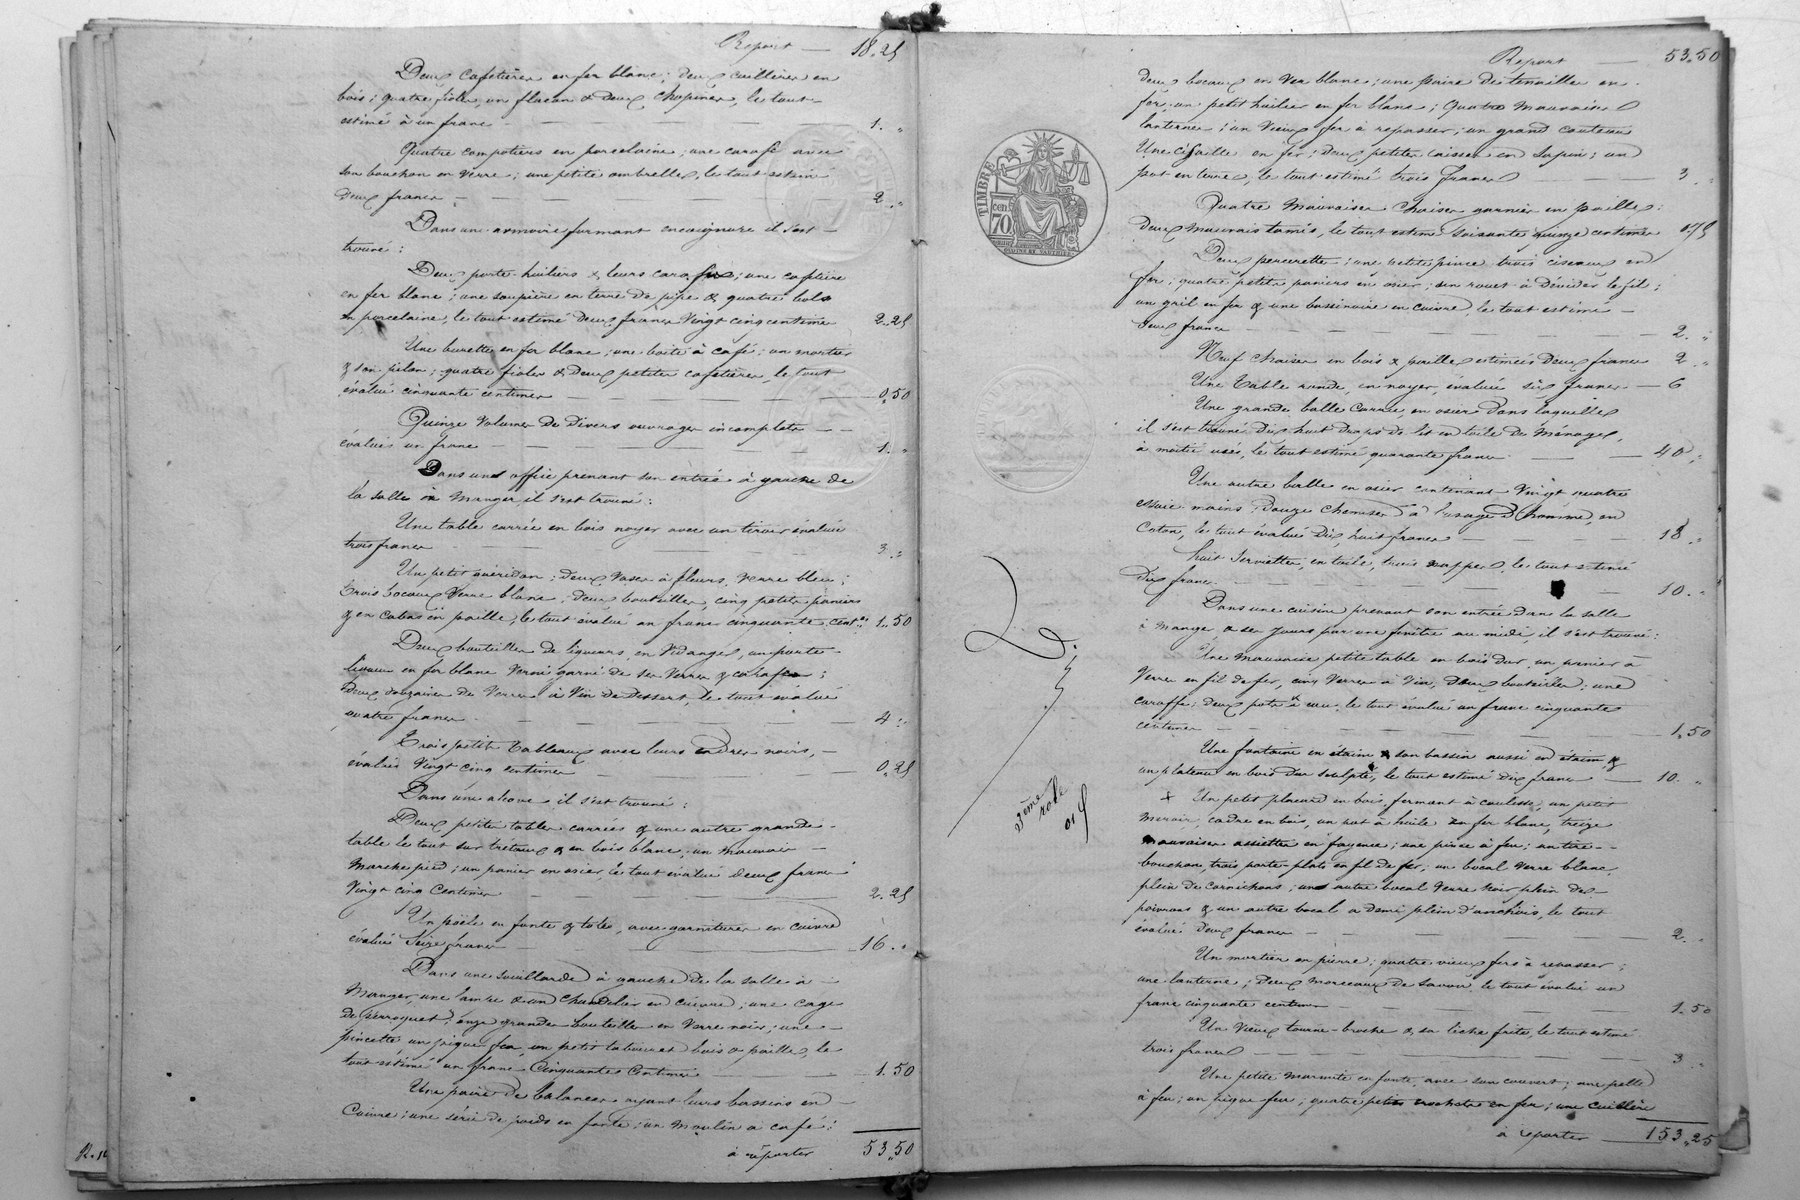 Report — 18.25
Deux cafetières en fer blanc; deux cuillères en
bois; quatre fioles, un flacon & deux chopines, le tout
estimé à un franc — 1. "
Quatre compotiers en porcelaine, une carafe avec
son bouchon en verre; une petite ombrelle, le tout estimé
deux francs — 2. "
Dans une armoire formant encoignure il s'est
trouvé:
Deux porte-huiliers & leurs carafes; une cafetière
en fer blanc; une soupière en terre de pipe & quatre bols
en porcelaine, le tout estimé deux francs vingt cinq centimes 2.25
Une burette en fer blanc; une boite à café; un mortier
& son pilon; quatre fioles & deux petites cafetières, le tout
évalué cinquante centimes — 0,50
Quinze volumes de divers ouvrages incomplets
évalués un franc — 1. "
Dans une office prenant son entrée à gauche de
la salle à manger il s'est trouvé:
Une table carrée en bois noyer avec un tiroir évaluée
trois francs — 3. "
Un petit guéridon; deux vases à fleurs, verre bleu;
trois bocaux verre blanc, deux bouteilles, cinq petits paniers
& un cabas en paille, le tout évalué un franc cinquante cent.es 1.50
Deux bouteilles de liqueurs en vidange, un porte-
liqueur en fer blanc verni garni de ses verres & carafes;
deux douzaines de verres à vin de dessert, le tout évalué
quatre francs — 4. "
Trois petits tableaux avec leurs cadres noirs,
évalués vingt cinq centimes — 0,25
Dans une alcove il s'est trouvé:
Deux petites tables carrées & une autre grande
table le tout sur tréteaux & en bois blanc, un mauvais
marche pied; un panier en osier, le tout évalué deux francs
vingt cinq centimes — 2.25
Un poële en fonte & tôle, avec garnitures en cuivre
évalué seize francs — 16. "
Dans une souillarde à gauche de la salle à
manger, une lampe & un chandelier en cuivre, une cage
de perroquet, onze grandes bouteilles en verre noir; une
pincette un pique feu, un petit tabouret bois & paille, le
tout estimé un franc cinquante centimes — 1.50
Une paire de balances ayant leurs bassins en
cuivre; une série de poids en fonte; un moulin à café;
à reporter 53.50
Report — 53.50
deux bocaux en verre blanc; une paire de tenaille en
fer, un petit huilier en fer blanc; quatre mauvaises
lanternes; un vieux fer à repasser; un grand couteau
Une cisaille en fer; deux petites caisses en sapin; un
pot en terre, le tout estimé trois francs — 3. "
TIMBRE
cen
70
Quatre mauvaises chaises garnies en paille;
deux mauvais tamis, le tout estimé soixante quinze centimes 0,75
Deux percerette; une petite pince trois ciseaux en
fer; quatre petits paniers en osier; un rouet à dévider le fil;
un gril en fer & une bassinoire en cuivre, le tout estimé
deux francs — 2. "
Neuf chaises en bois & paille, estimées deux francs 2. "
Une table ronde, en noyer, évaluée six francs — 6
Une grande balle carrée, en osier dans laquelle
il s'est trouvé dix huit draps de lit en toile de ménage,
à moitié usés, le tout estimé quarante francs — 40. "
Une autre balle en osier contenant vingt quatre
essuie-mains, douze chemises à l'usage d'homme, en
coton, le tout évalué dix huit francs — 18. "
Huit serviettes, en toile, trois nappes, le tout estimé
dix francs — 10. "
Dans une cuisine prenant son entrée dans la salle
à manger & ses jours par une fenêtre au midi il s'est trouvé:
Une mauvaise petite table en bois dur, un panier à
verres en fil de fer, cinq verres à vin, deux bouteilles; une
caraffe; deux pots à eau, le tout évalué un franc cinquante
centimes — 1,50
Une fontaine en étain & son bassin aussi en étain &
un plateau en bois dur sculpté, le tout estimé dix francs — 10. "
3ème
role
Un petit placard en bois, fermant à coulisse, un petit
miroir, cadre en bois, un pot à huile en fer blanc, treize
mauvaises assiettes en fayence; une pince à feu; un tire-
bouchon, trois porte-plats en fil de fer, un bocal verre blanc,
plein de cornichons; un autre bocal verre noir plein de
poivrons & un autre bocal à demi plein d'anchois, le tout
évalué deux francs — 2. "
Un mortier en pierre; quatre vieux fers à repasser;
une lanterne; deux morceaux de savon, le tout évalué un
franc cinquante centimes — 1.50
Un vieux tourne-broche & sa lèche frite, le tout estimé
trois francs — 3. "
Une petite marmite en fonte, avec son couvert; une pelle
à feu; un pique feu; quatre petits crochets en fer; une cuillère
à reporter — 153,25